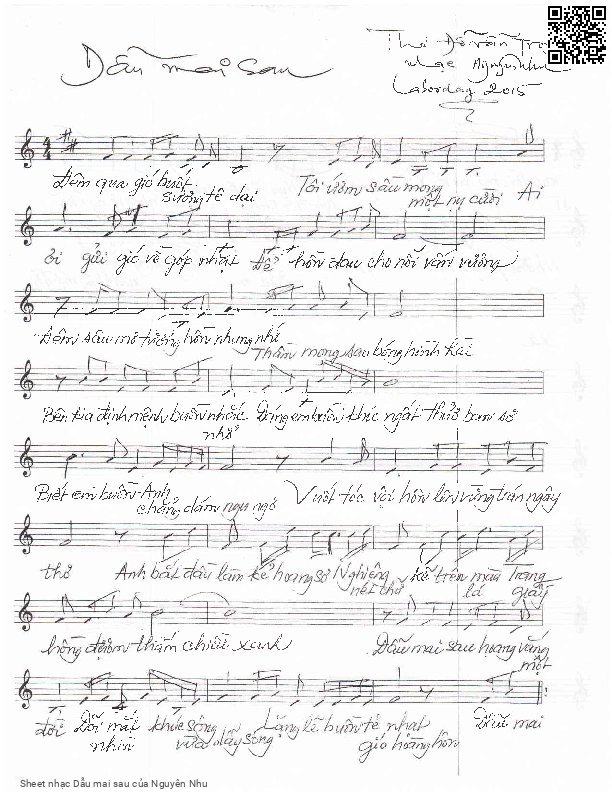 Dẫu mai sau
Thơ Đỗ Văn
nhạc Nguyên Nhu
Laborday 2015
Đêm qua gió buốt
sương tê dại
Tôi ươm sầu mong
một nụ cười
Ai
ơi gửi gió về góp nhặt
Để hồn đau cho nỗi vấn vương
Đêm sâu mơ tưởng hồn nhung nhớ
Thầm mong sao bóng hình
Bên kia định mệnh buồn
nhớ
khúc ngất thuở ban sơ
Biết em buồn Anh
chẳng dám ngu ngơ
Vuốt tóc vội hôn lên vừng trán ngây
thơ
Anh bắt đầu làm kẻ hoang sơ
Nghiêng
nét thơ
kẽ trên màu
lá
Trang
giấy
hồng đượm thắm chiều xanh
Dẫu mai sau hoang vắng
một
đời
Đôi mắt
nhìn
khúc sông
vừa dấy sóng
Lặng lẽ buồn tê nhạt
gió hoàng hôn
Dẫu mai
Sheet nhạc Dẫu mai sau của Nguyên Nhu